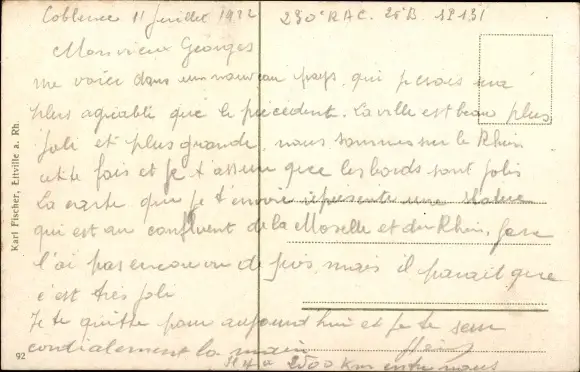 Coblence 11 Juillet 1922 230e RAC. 25e B. SP 131
Mon vieux Georges
me voici dans un nouveau pays qui je crois sera
plus agréable que le précédent. La ville est beau plus
joli et plus grande, nous sommes sur le Rhin
cette fois et je t'assure que les bords sont jolis
La carte que je t'envoie représente une statue
qui est au confluent de la Moselle et du Rhin, je ne
l'ai pas encore vu de près mais il parait que
c'est très joli
Je te quitte pour aujourd hui et je te serre
cordialement la main
Il y a 2500 Km entre nous
Karl Fischer, Eltville a. Rh.
92